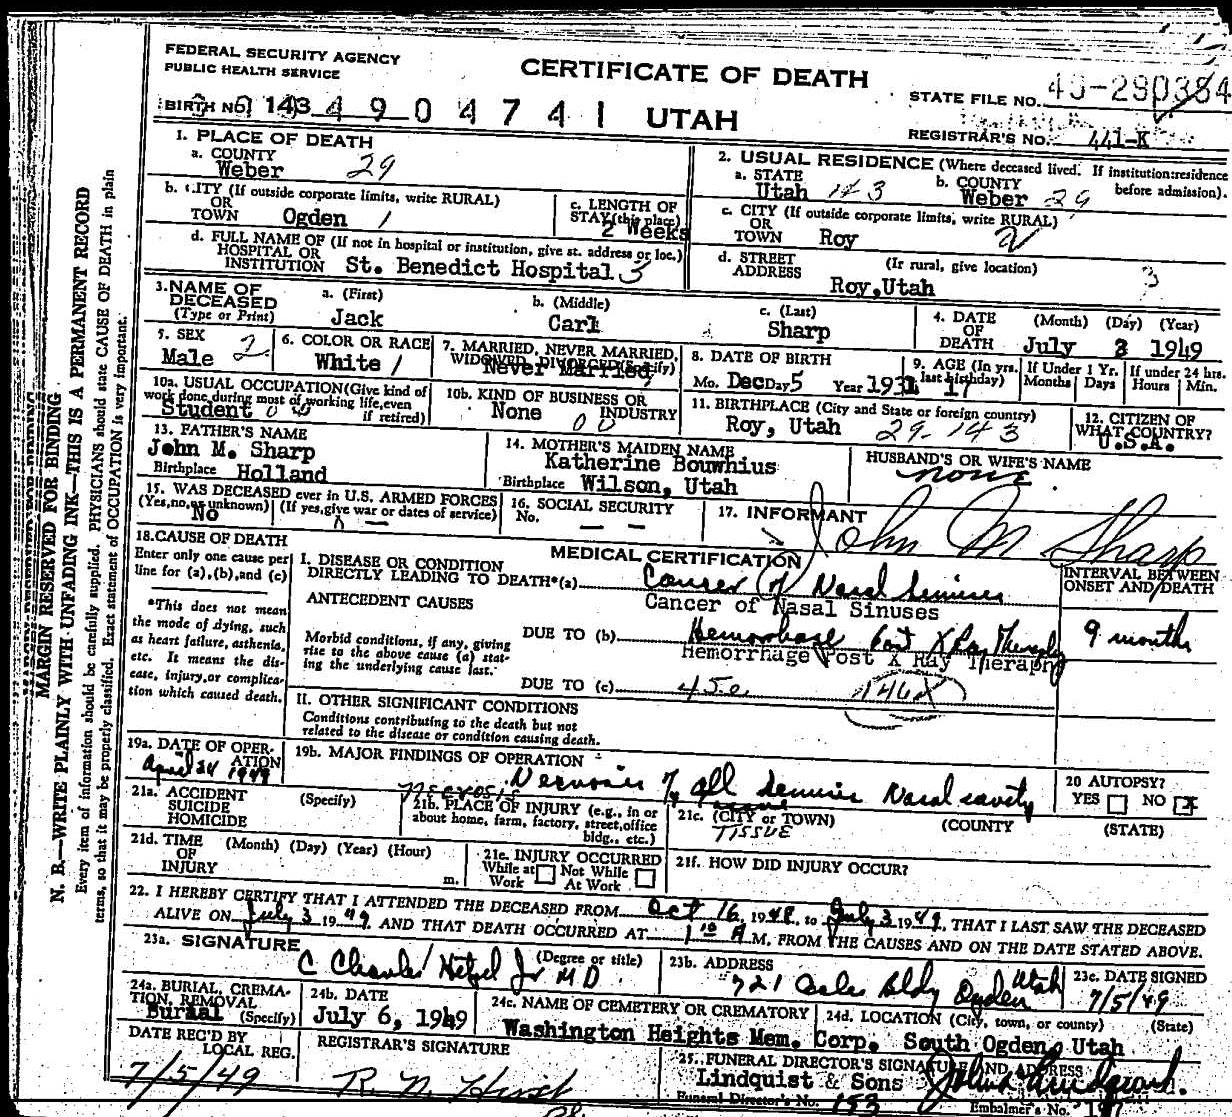 FEDERAL SECURITY AGENCY
PUBLIC HEALTH SERVICE
CERTIFICATE OF DEATH
STATE FILE NO.
BIRTH NO. 143 4904741 UTAH
REGISTRAR'S NO. 441-K
1. PLACE OF DEATH
a. COUNTY
Weber 29
2. USUAL RESIDENCE (Where deceased lived. If institution:residence before admission).
a. STATE
Utah 143
b. COUNTY
Weber 29
b. CITY (If outside corporate limits, write RURAL)
OR
TOWN Ogden 1
c. LENGTH OF
STAY(this place)
2 Weeks
c. CITY (If outside corporate limits, write RURAL)
OR
TOWN Roy 2
d. FULL NAME OF (If not in hospital or institution, give st. address or loc.)
HOSPITAL OR
INSTITUTION St. Benedict Hospital 3
d. STREET (If rural, give location)
ADDRESS
Roy,Utah 3
3.NAME OF
DECEASED
(Type or Print)
a. (First)
Jack
b. (Middle)
Carl
c. (Last)
Sharp
4. DATE
OF
DEATH
(Month) (Day) (Year)
July 3 1949
5. SEX
Male 2
6. COLOR OR RACE
White 1
7. MARRIED, NEVER MARRIED,
WIDOWED, DIVORCED(Specify)
Never Married
8. DATE OF BIRTH
Mo. Dec Day 5 Year 1931
9. AGE (In yrs.
last birthday)
17
If Under 1 Yr.
Months Days
If under 24 hrs.
Hours Min.
10a. USUAL OCCUPATION(Give kind of
work done during most of working life,even
if retired)
Student
10b. KIND OF BUSINESS OR
INDUSTRY
None 00
11. BIRTHPLACE (City and State or foreign country)
Roy, Utah 29-143
12. CITIZEN OF
WHAT COUNTRY?
U.S.A.
13. FATHER'S NAME
John M. Sharp
Birthplace Holland
14. MOTHER'S MAIDEN NAME
Katherine Bouwhius
Birthplace Wilson, Utah
HUSBAND'S OR WIFE'S NAME
none
15. WAS DECEASED ever in U.S. ARMED FORCES
(Yes,no,or unknown) (If yes,give war or dates of service)
No
16. SOCIAL SECURITY
No. — —
17. INFORMANT
John M Sharp
18.CAUSE OF DEATH
Enter only one cause per
line for (a),(b),and (c)
*This does not mean
the mode of dying, such
as heart failure, asthenia,
etc. It means the dis-
ease, injury,or complica-
tion which caused death.
MEDICAL CERTIFICATION
INTERVAL BETWEEN
ONSET AND DEATH
I. DISEASE OR CONDITION
DIRECTLY LEADING TO DEATH*(a) Cancer of Nasal Sinuses
Cancer of Nasal Sinuses
ANTECEDENT CAUSES
Morbid conditions, if any, giving
rise to the above cause (a) stat-
ing the underlying cause last.
DUE TO (b) Hemorrhage Post X Ray Therapy
Hemorrhage Post X Ray Therapy
9 months
DUE TO (c)
II. OTHER SIGNIFICANT CONDITIONS
Conditions contributing to the death but not
related to the disease or condition causing death.
19a. DATE OF OPER-
ATION
April 24 1949
19b. MAJOR FINDINGS OF OPERATION
Necrosis of all Nasal cavity
Necrosis
TISSUE
20 AUTOPSY?
YES NO X
21a. ACCIDENT
SUICIDE
HOMICIDE
(Specify)
21b. PLACE OF INJURY (e.g., in or
about home, farm, factory, street,office
bldg., etc.)
21c. (CITY or TOWN) (COUNTY) (STATE)
21d. TIME (Month) (Day) (Year) (Hour)
OF
INJURY m.
21e. INJURY OCCURRED
While at Work Not While At Work
21f. HOW DID INJURY OCCUR?
22. I HEREBY CERTIFY THAT I ATTENDED THE DECEASED FROM Oct 16, 1948, to July 3 1949, THAT I LAST SAW THE DECEASED
ALIVE ON July 3 1949. AND THAT DEATH OCCURRED AT 1 10 A M, FROM THE CAUSES AND ON THE DATE STATED ABOVE.
23a. SIGNATURE (Degree or title)
C Charles Hetzel Jr MD
23b. ADDRESS
721 Eccles Bldg Ogden Utah
23c. DATE SIGNED
7/5/49
24a. BURIAL, CREMA-
TION, REMOVAL
(Specify)
Burial
24b. DATE
July 6, 1949
24c. NAME OF CEMETERY OR CREMATORY
Washington Heights Mem. Corp.
24d. LOCATION (City, town, or county) (State)
South Ogden, Utah
DATE REC'D BY
LOCAL REG.
7/5/49
REGISTRAR'S SIGNATURE
25. FUNERAL DIRECTOR'S SIGNATURE AND ADDRESS
Lindquist & Sons
Funeral Director's No. 153
Embalmer's No.
MARGIN RESERVED FOR BINDING
N. B.—WRITE PLAINLY WITH UNFADING INK—THIS IS A PERMANENT RECORD
Every item of information should be carefully supplied. PHYSICIANS should state CAUSE OF DEATH in plain
terms, so that it may be properly classified. Exact statement of OCCUPATION is very important.